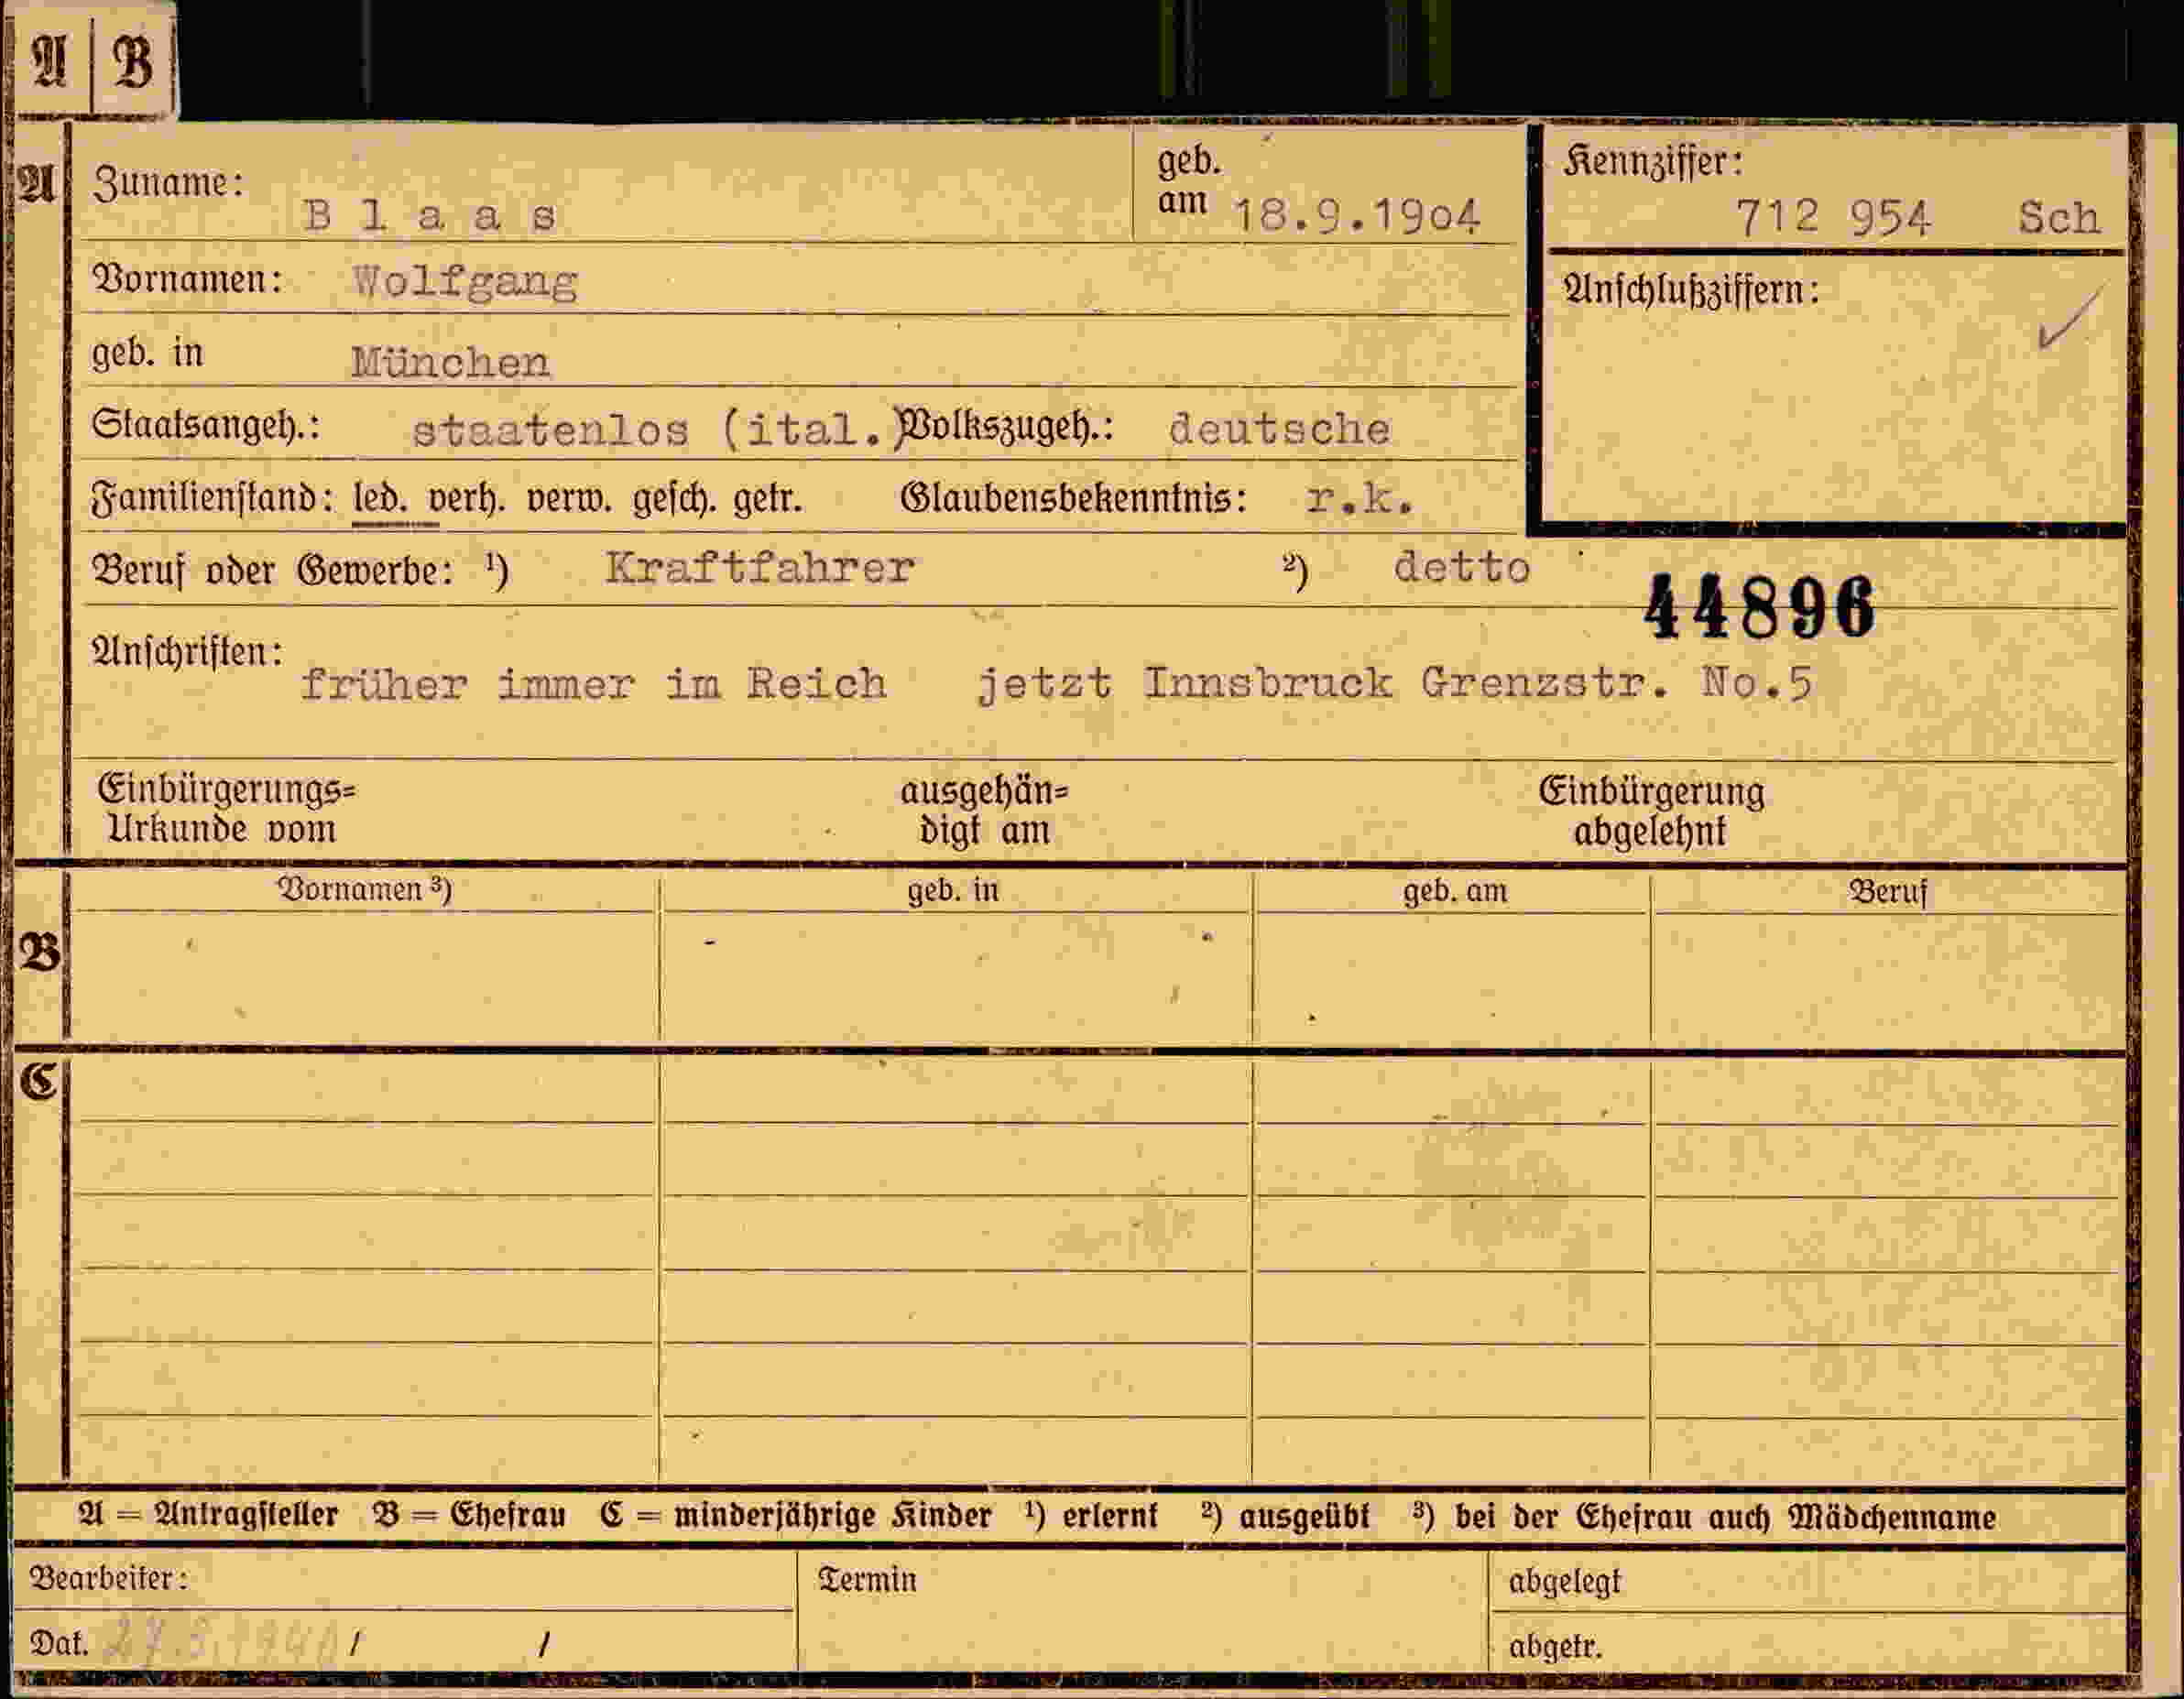 A B
A
Zuname: Blaas geb. am 18.9.19o4
Kennziffer: 712 954 Sch
Vornamen: Wolfgang
Anschlußziffern:
geb. in München
Staatsangeh.: staatenlos (ital.) Volkszugeh.: deutsche
Familienstand: led. verh. verw. gesch. getr. Glaubensbekenntnis: r.k.
Beruf oder Gewerbe: ¹) Kraftfahrer ²) detto
44896
Anschriften: früher immer im Reich jetzt Innsbruck Grenzstr. No.5
Einbürgerungs= ausgehän= Einbürgerung
Urkunde vom digt am abgelehnt
B
Vornamen ³) geb. in geb. am Beruf
C
A = Antragsteller B = Ehefrau C = minderjährige Kinder ¹) erlernt ²) ausgeübt ³) bei der Ehefrau auch Mädchenname
Bearbeiter: Termin abgelegt
Dat. / / abgetr.